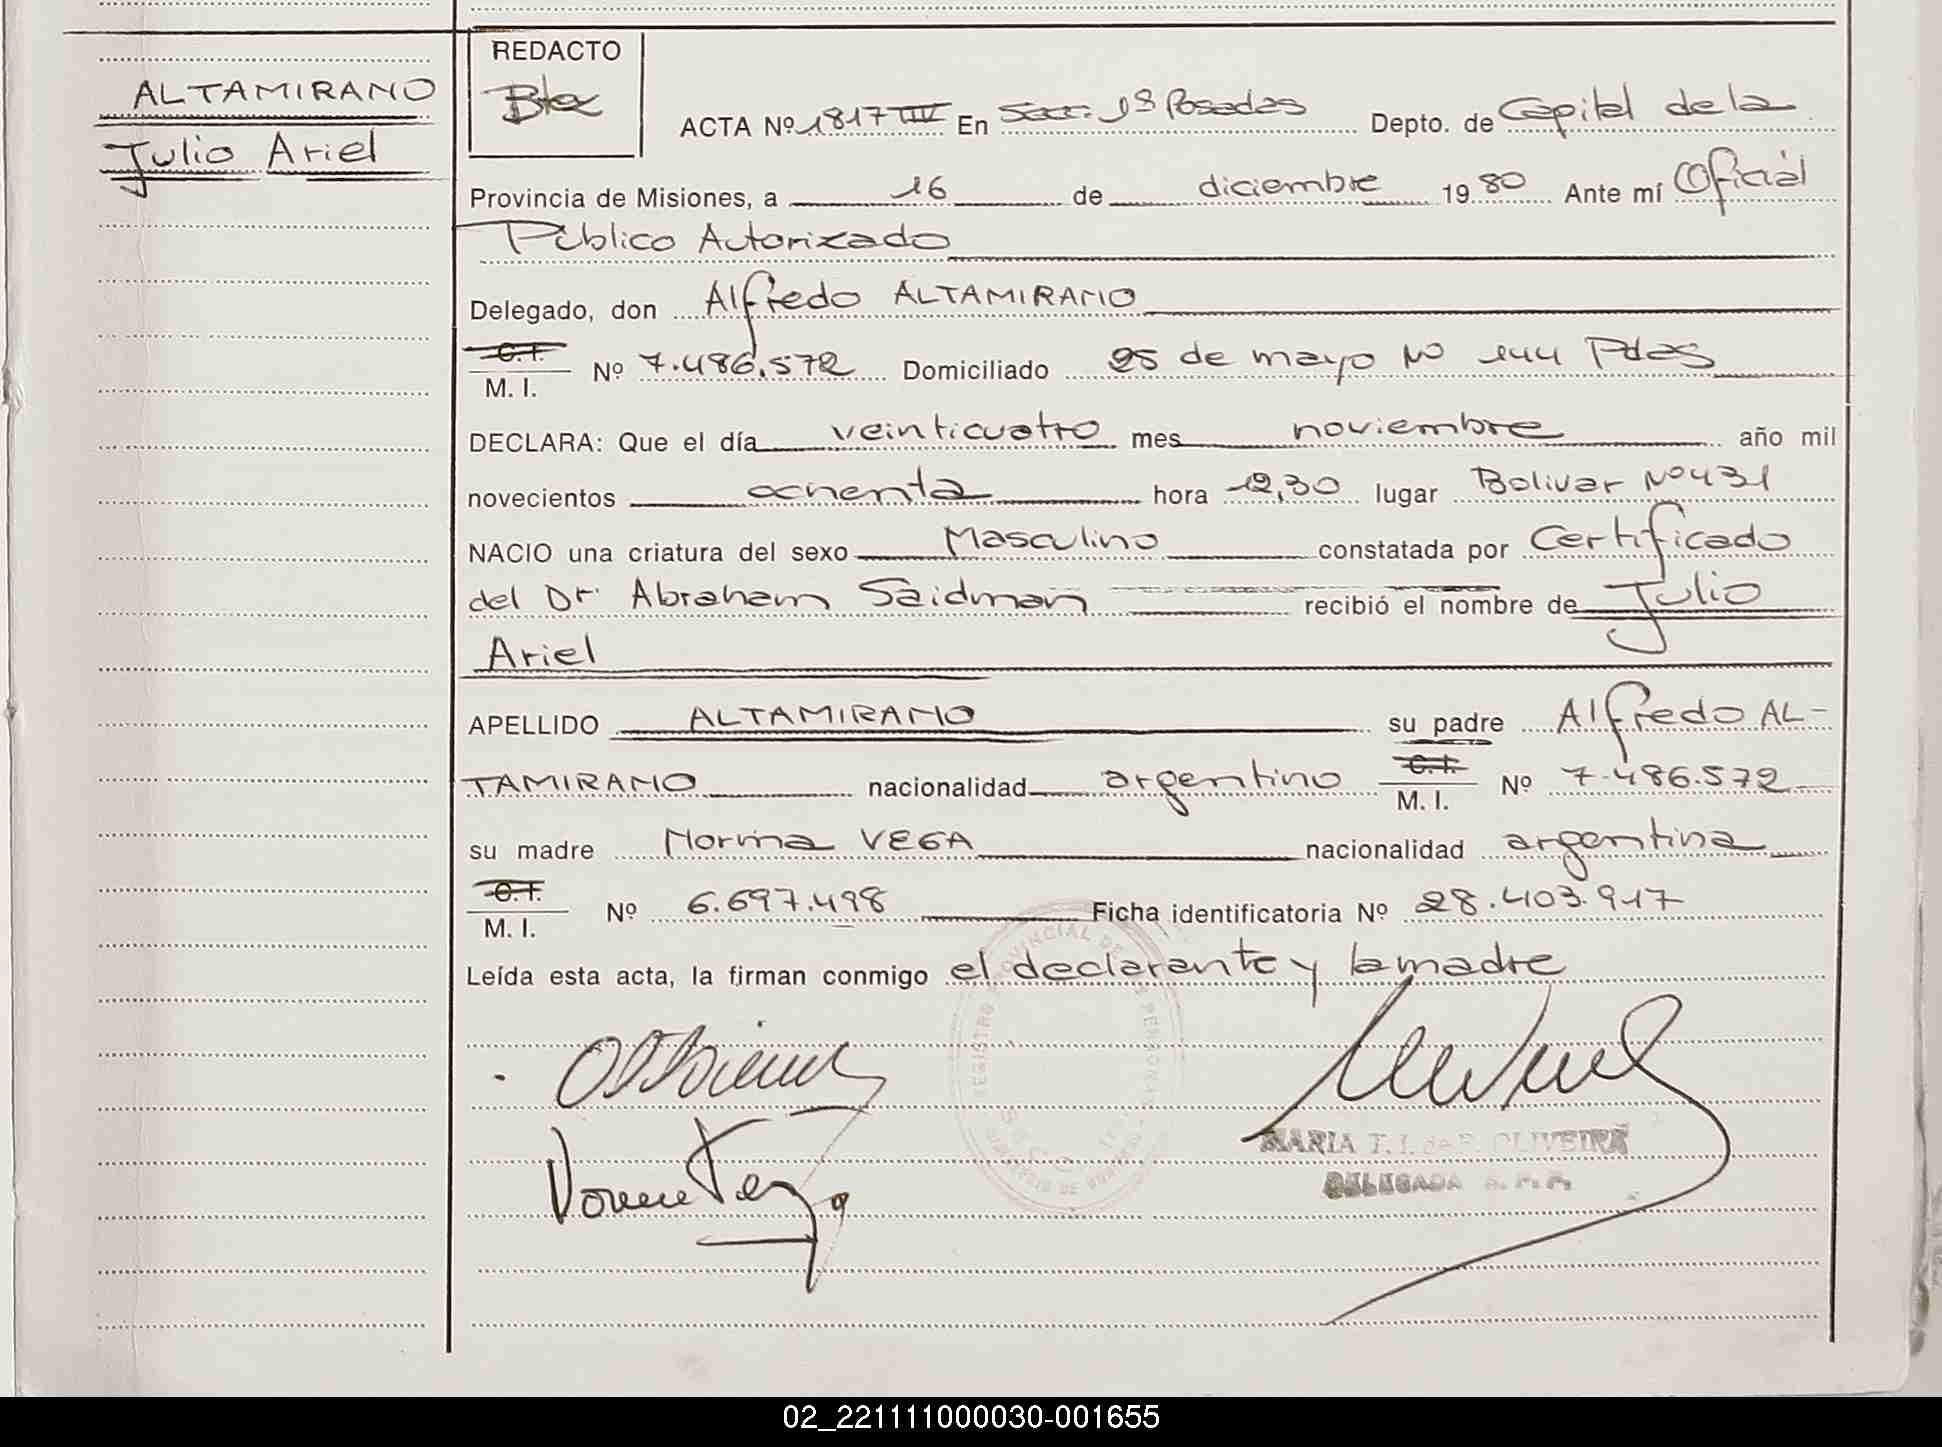 ALTAMIRANO
Julio Ariel
REDACTO
ACTA Nº 1817 III En Secc. 1ª Posadas Depto. de Capital de la
Provincia de Misiones, a 16 de diciembre 1980 Ante mí Oficial
Público Autorizado
Delegado, don Alfredo ALTAMIRANO
C.I.
M. I. Nº 7.486.572 Domiciliado 25 de mayo Nº 144 Pdas
DECLARA: Que el día veinticuatro mes noviembre año mil
novecientos ochenta hora 12,30 lugar Bolivar Nº 431
NACIO una criatura del sexo Masculino constatada por Certificado
del Dr. Abraham Saidman recibió el nombre de Julio
Ariel
APELLIDO ALTAMIRANO su padre Alfredo AL-
TAMIRANO nacionalidad argentino C.I. M. I. Nº 7.486.572
su madre Norma VEGA nacionalidad argentina
C.I.
M. I. Nº 6.697.498 Ficha identificatoria Nº 28.403.917
Leída esta acta, la firman conmigo el declarante y la madre
MARIA T. I. de P. OLIVEIRA
DELEGADA R. P. P.
02_221111000030-001655